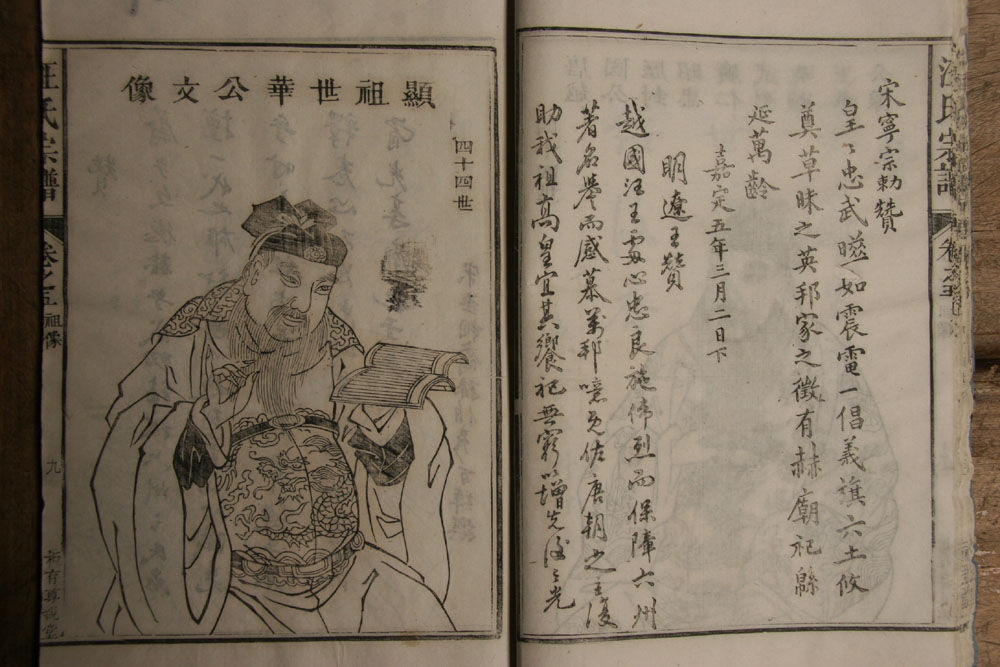 汪氏宗譜
宋寧宗勅贊
皇〻忠武曒如震電一倡義旗六土攸
奠草昧之英邦家之徵有赫廟祀緜
延萬齡
嘉定五年三月二日下
明遼王贊
越國汪王處心忠良施偉烈而保障六州
著名譽而感慕萬邦噫旣佐唐朝之主復
助我祖高皇宜其饗祀無窮以增先後之光
顯祖世華公文像
四十四世
汪氏宗譜
卷之五
祖像
九